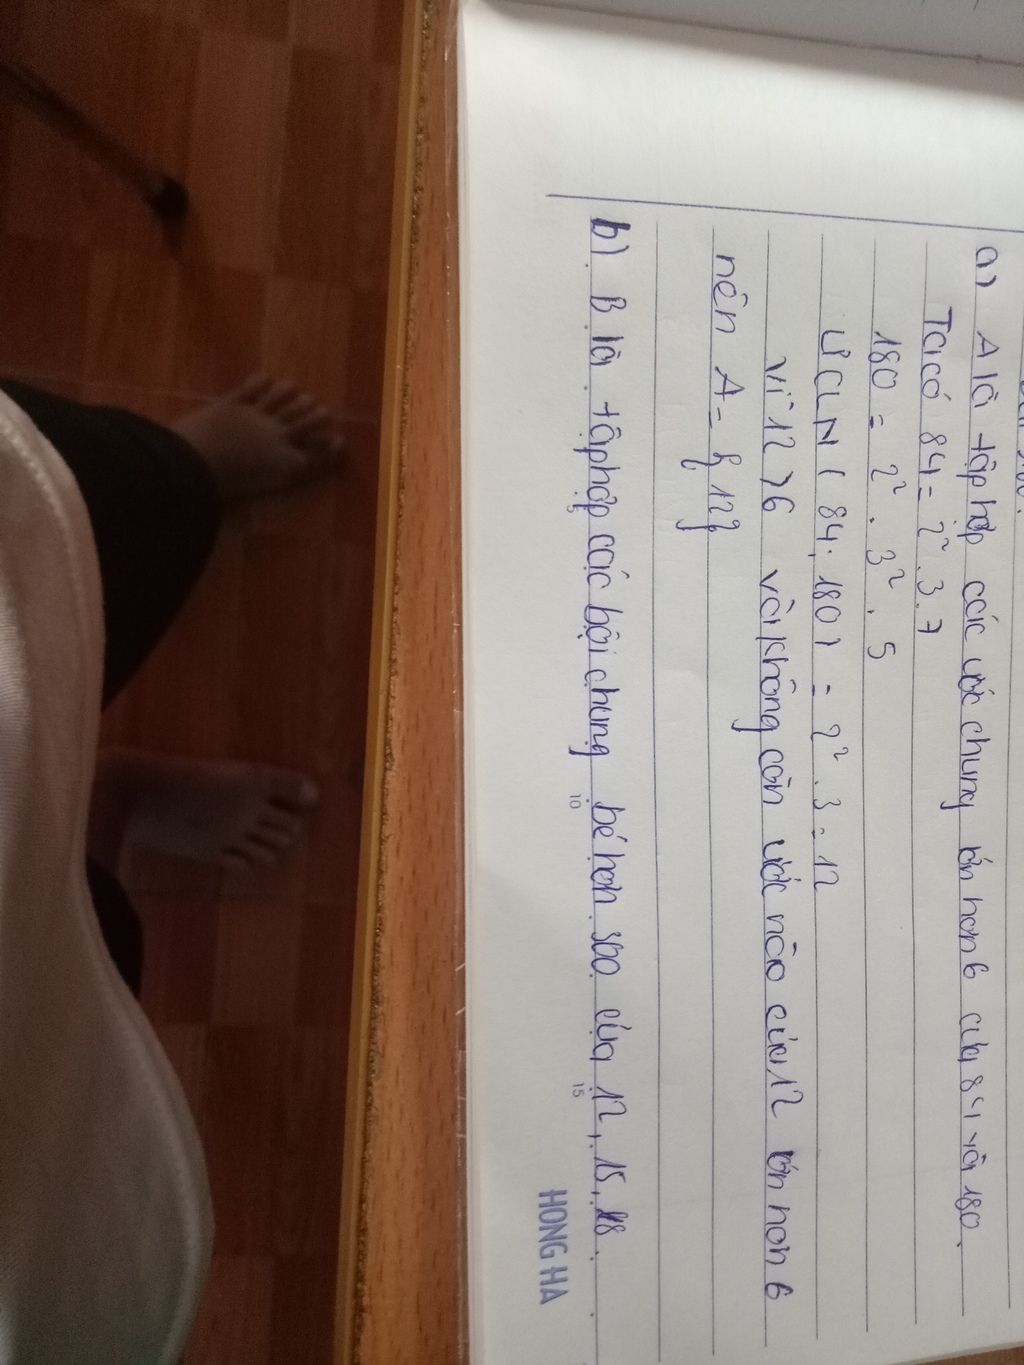 a) A là tập hợp các ước chung lớn hơn 6 của 84 và 180.
Ta có 84 = 2². 3. 7
180 = 2² . 3² . 5
ƯCLN ( 84, 180 ) = 2² . 3 = 12
vì 12 > 6 và không còn ước nào của 12 lớn hơn 6
nên A = { 12 }
b) B là tập hợp các bội chung bé hơn 500 của 12, 15, 18.
5 10 15
HONG HA